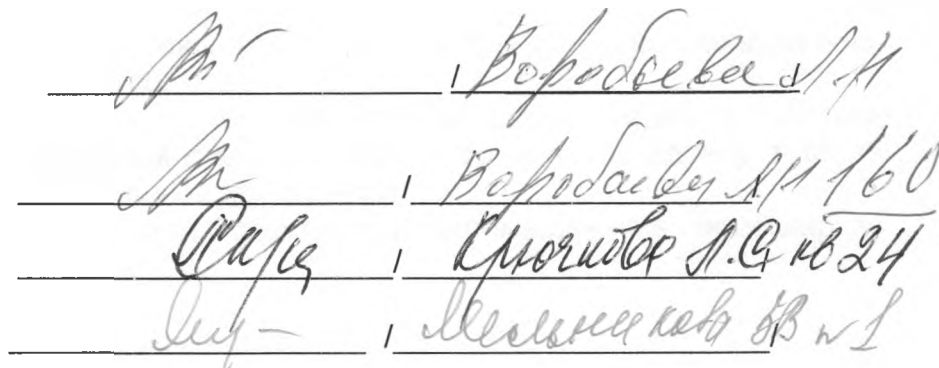 Воробьева Л Н
Воробьева Л Н 160
Крючкова Л.С кв 24
Мельникова ВВ к 1